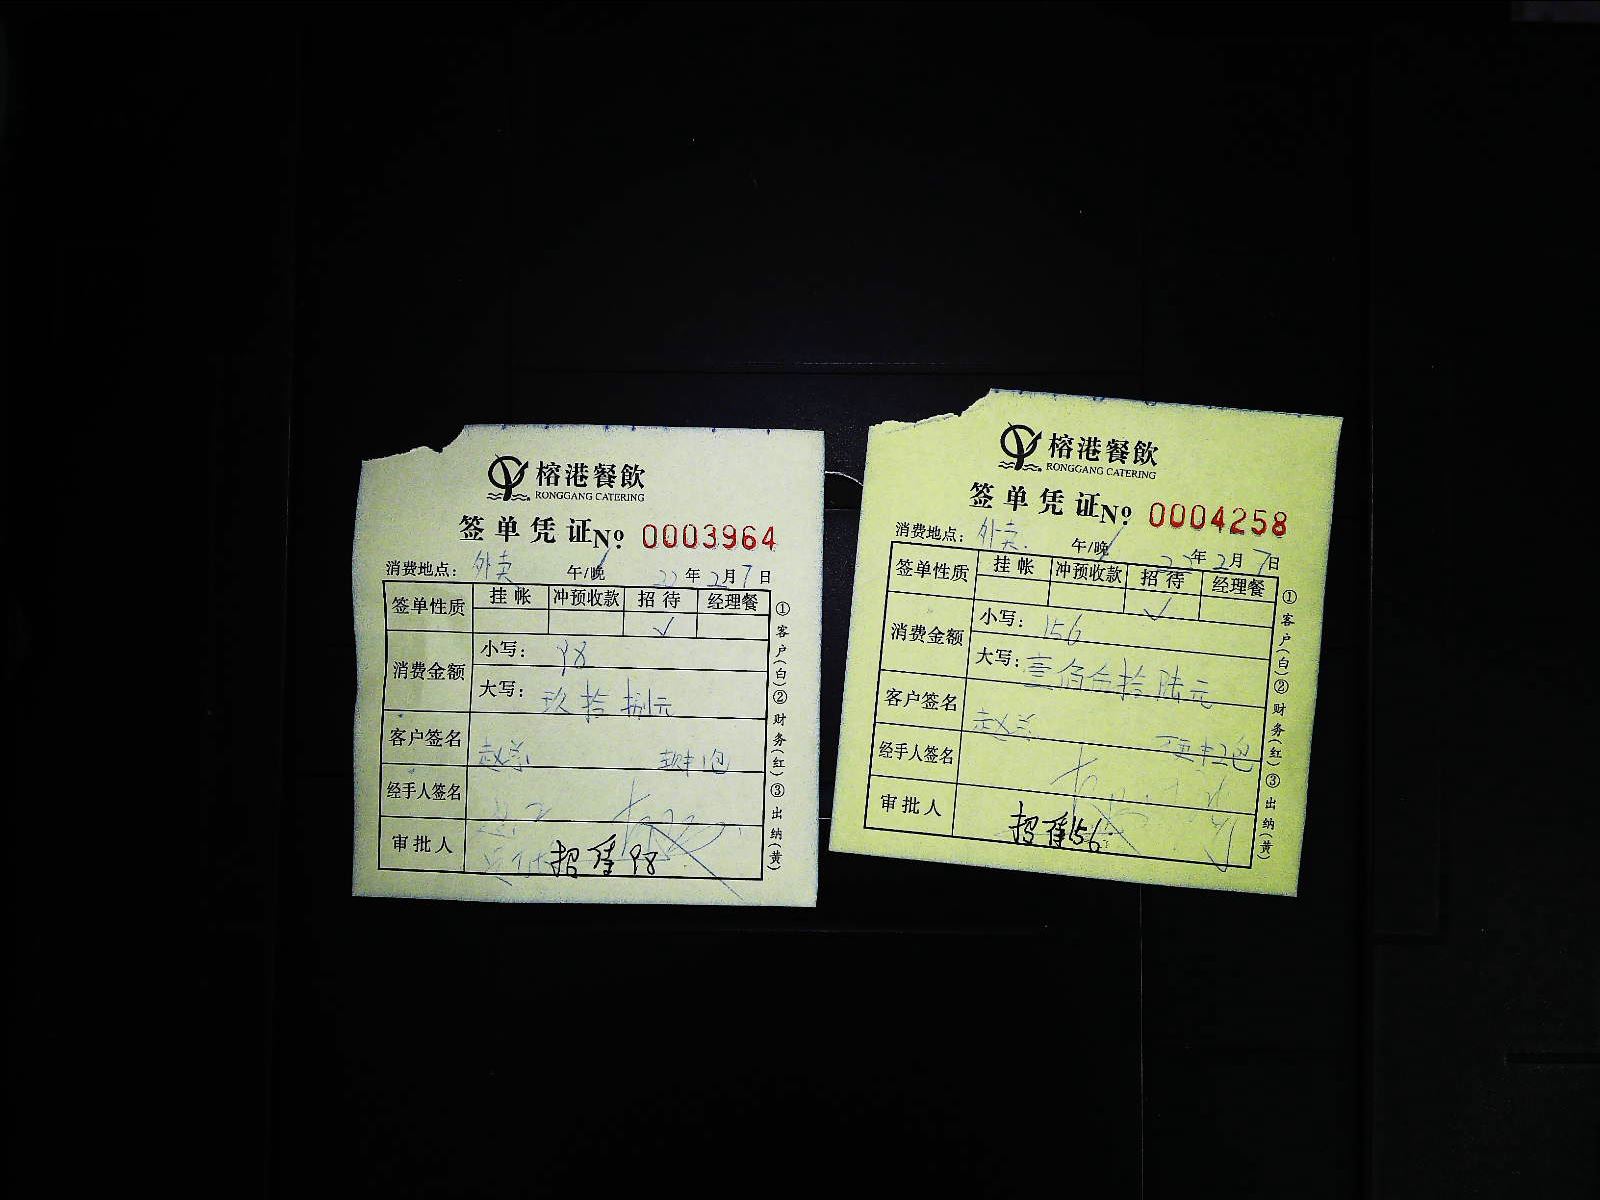 榕港餐飲
RONGGANG CATERING
签单凭证 No 0003964
消费地点: 外卖 午/晚 22年2月7日
签单性质 挂帐 冲预收款 招待 经理餐
✓
消费金额 小写: 98
大写: 玖拾捌元
客户签名 赵总
经手人签名
审批人 招待98
①客户(白)②财务(红)③出纳(黄)
榕港餐飲
RONGGANG CATERING
签单凭证 No 0004258
消费地点: 外卖. 午/晚 22年2月7日
签单性质 挂帐 冲预收款 招待 经理餐
✓
消费金额 小写: 156
大写: 壹佰伍拾陆元
客户签名 赵总
经手人签名
审批人 招待156
①客户(白)②财务(红)③出纳(黄)